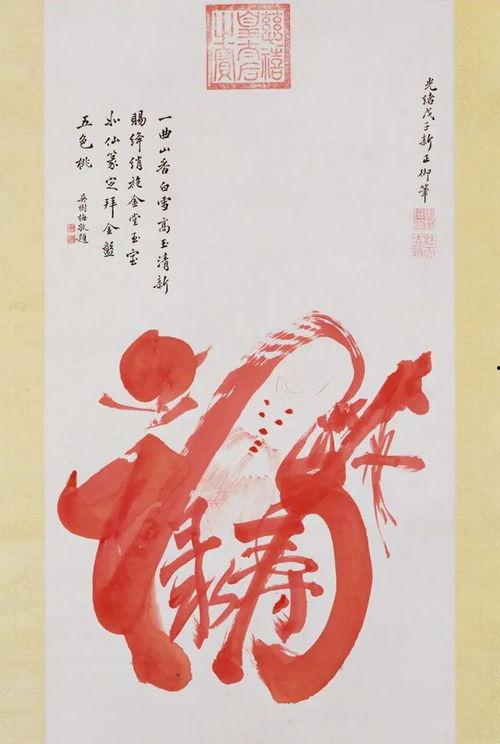 慈禧皇太后之寶
光緒戊子新正御筆
一曲山香白雪高玉清新
賜絳綃旄金堂玉室
仙篆定拜金盤
五色桃
吳樹梅敬題
福
祿壽